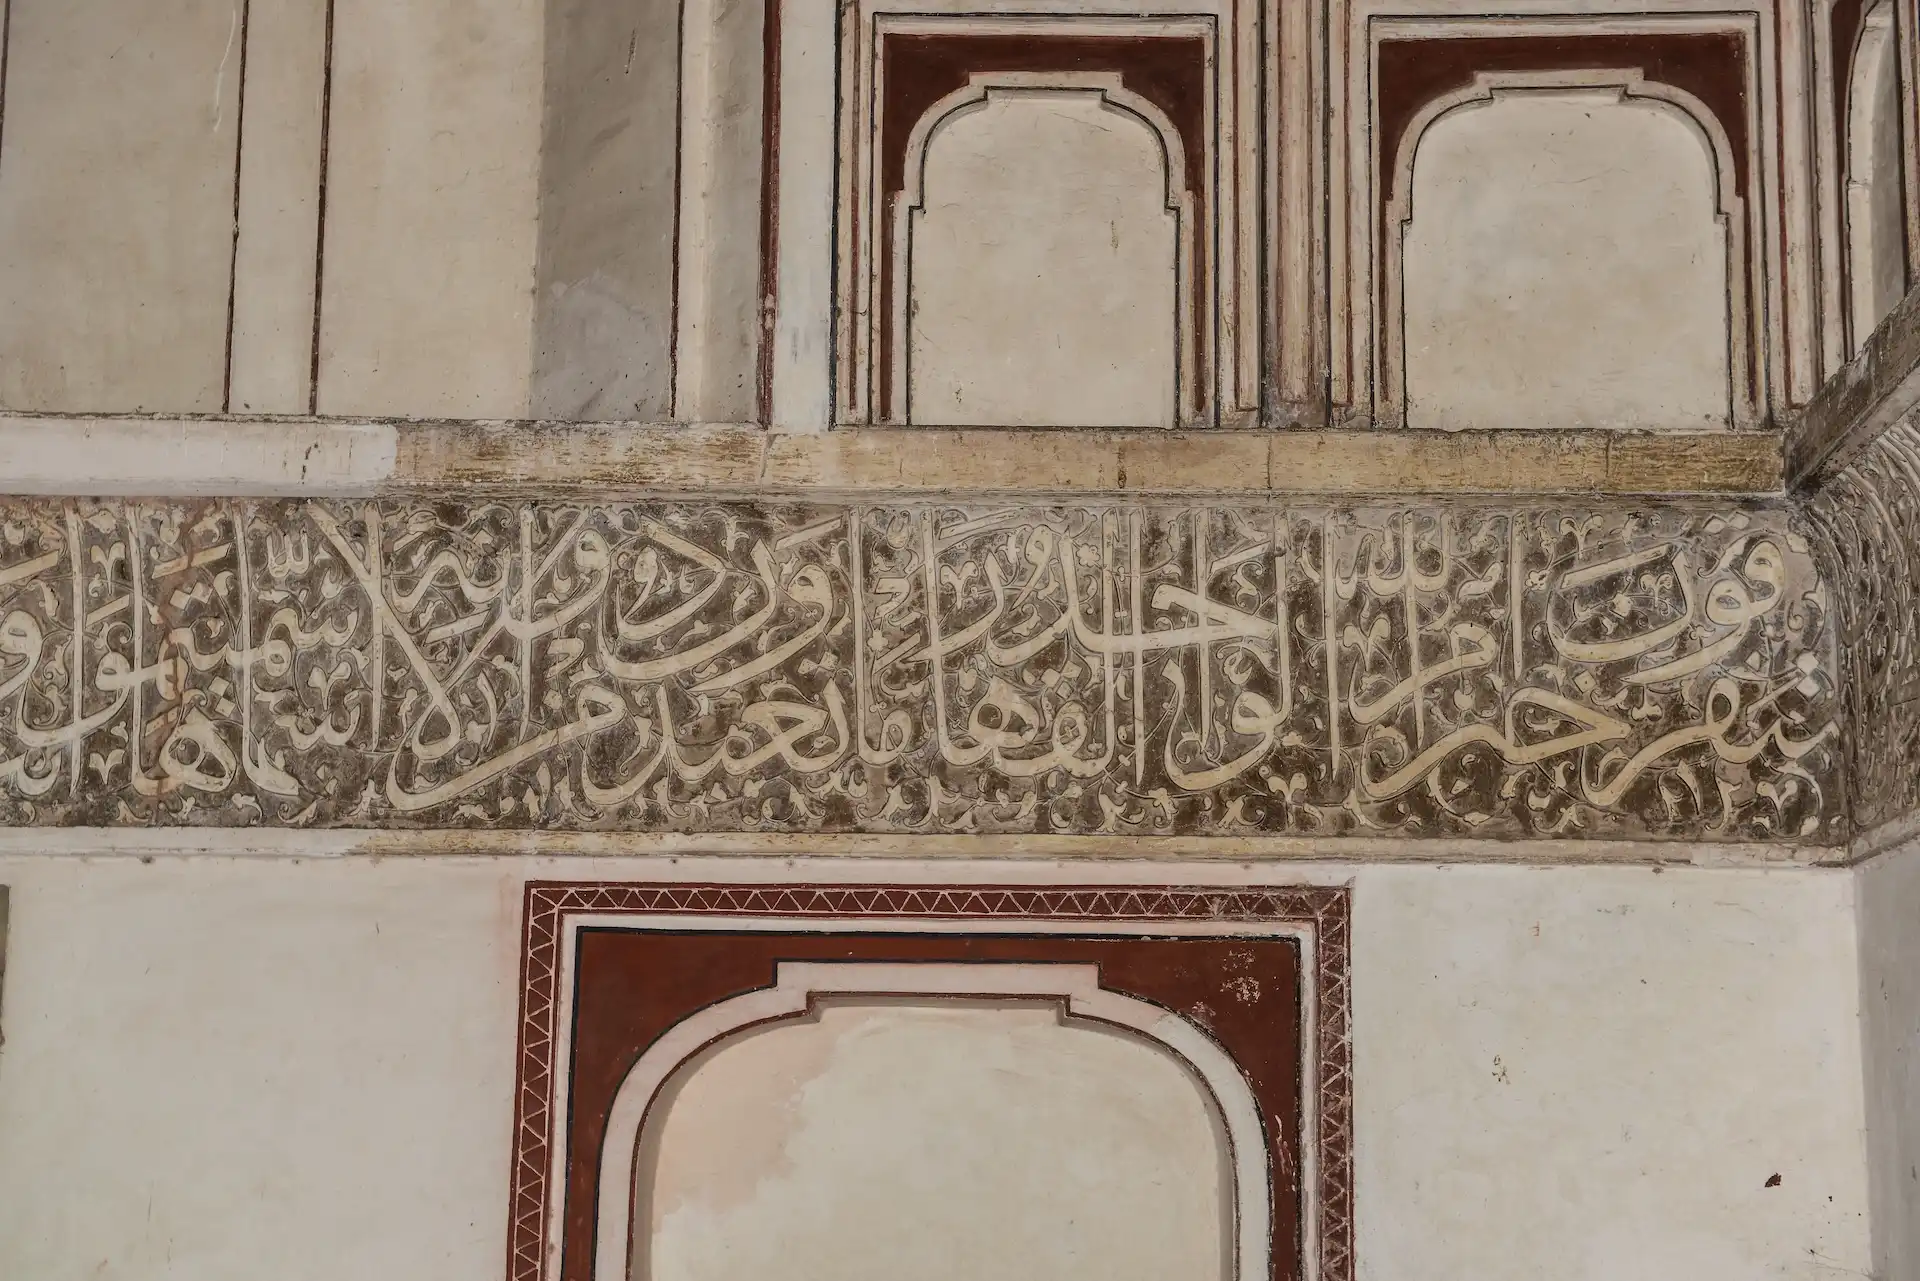 متفرقون خير ام الله الواحد القهار ما تعبدون من دونه الا اسماء سميتموها